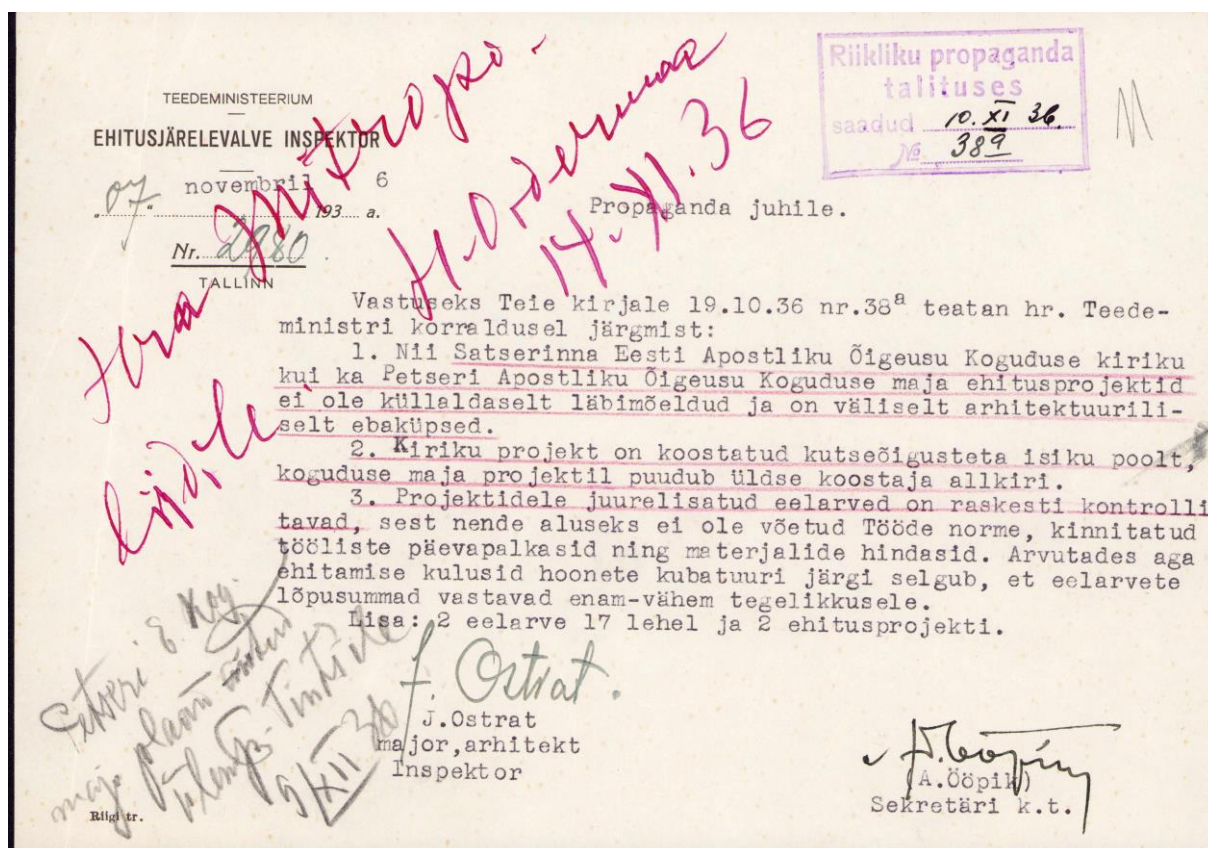 TEEDEMINISTEERIUM
EHITUSJÄRELEVALVE INSPEKTOR
„07“ novembril 1936 a.
Nr. 2980
TALLINN
Riikliku propaganda
talituses
saadud 10. XI 36.
№ 389
14. XI. 36
Propaganda juhile.
Vastuseks Teie kirjale 19.10.36 nr.38a teatan hr. Teede-
ministri korraldusel järgmist:
1. Nii Satserinna Eesti Apostliku Õigeusu Koguduse kiriku
kui ka Petseri Apostliku Õigeusu Koguduse maja ehitusprojektid
ei ole küllaldaselt läbimõeldud ja on väliselt arhitektuurili-
selt ebaküpsed.
2. Kiriku projekt on koostatud kutseõigusteta isiku poolt,
koguduse maja projektil puudub üldse koostaja allkiri.
3. Projektidele juurelisatud eelarved on raskesti kontrolli
tavad, sest nende aluseks ei ole võetud Tööde norme, kinnitatud
tööliste päevapalkasid ning materjalide hindasid. Arvutades aga
ehitamise kulusid hoonete kubatuuri järgi selgub, et eelarvete
lõpusummad vastavad enam-vähem tegelikkusele.
Lisa: 2 eelarve 17 lehel ja 2 ehitusprojekti.
J. Ostrat.
J.Ostrat
major,arhitekt
Inspektor
(A.Ööpik)
Sekretäri k.t.
Petseri E. Kog.
maja plaan
5/XII 36
Riigi tr.